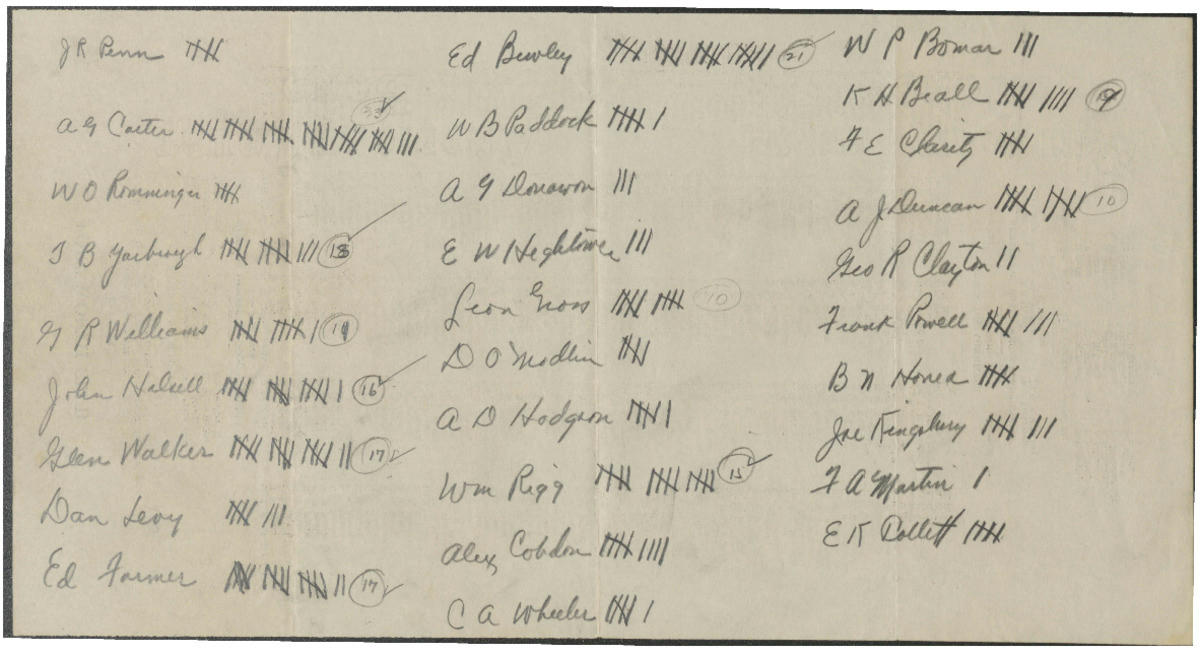 J R Penn 卌
A G Carter 卌 卌 卌 卌 卌 卌 ||| 33
W O Romminger 卌
T B Yarbrough 卌 卌 ||| 13
G R Williams 卌 卌 | 11
John Halsell 卌 卌 卌 | 16
Glen Walker 卌 卌 卌 || 17
Dan Levy 卌 |||
Ed Farmer 卌 卌 卌 || 17
Ed Bewley 卌 卌 卌 卌 | 21
W B Paddock 卌 |
A G Donawon |||
E W Hightower |||
Leon Gross 卌 卌 10
D O Modlin 卌
A D Hodgson 卌 |
Wm Rigg 卌 卌 卌 15
Alex Cobdon 卌 ||||
C A Wheeler 卌 |
W P Bomar |||
K H Beall 卌 |||| 9
F E Clarity 卌
A J Duncan 卌 卌 10
Geo R Clayton ||
Frank Powell 卌 |||
B N Honea 卌
Joe Kingsbury 卌 |||
F A Martin |
E K Collett 卌